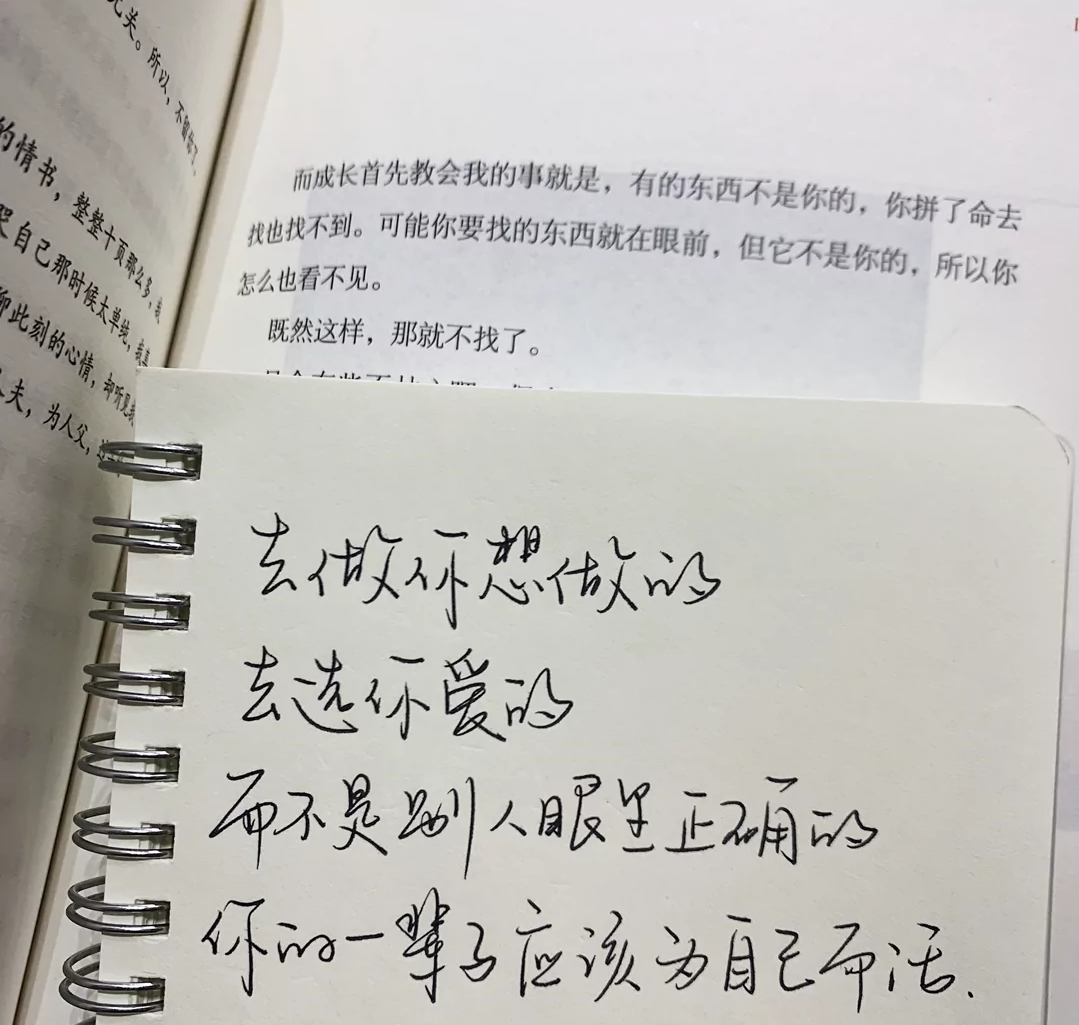 无关。所以，不留你了。
的情书，整整十页那么多，我
自己那时候太单纯，我真
此刻的心情，却听见我
夫，为人父，
而成长首先教会我的事就是，有的东西不是你的，你拼了命去
找也找不到。可能你要找的东西就在眼前，但它不是你的，所以你
怎么也看不见。
既然这样，那就不找了。
去做你想做的
去选你爱的
而不是别人眼里正确的
你的一辈子应该为自己而活.